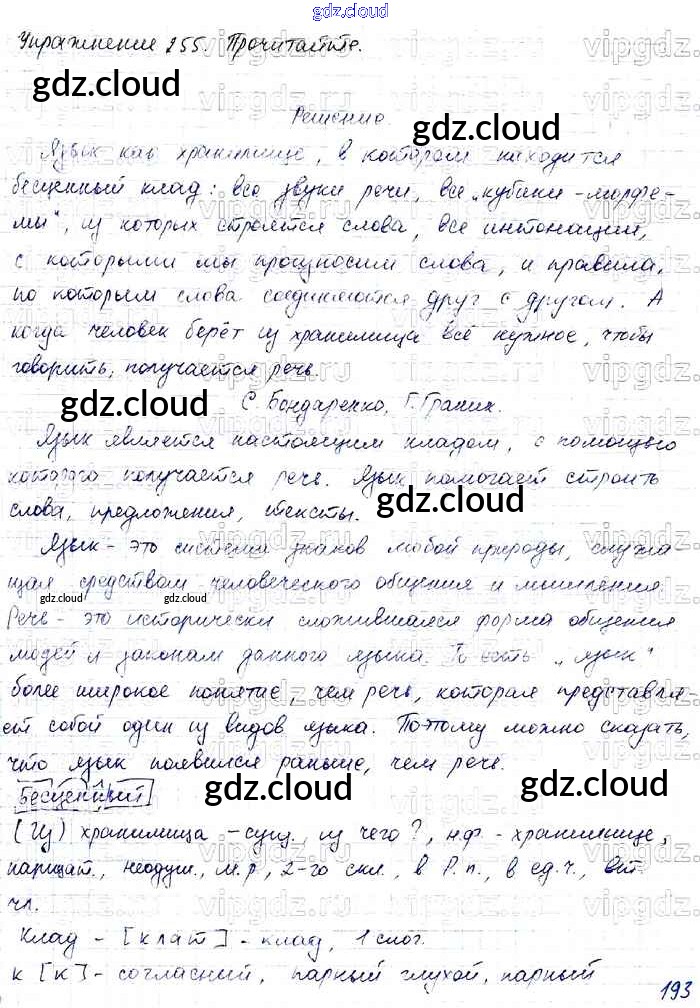 gdz.cloud
Упражнение 255. Прочитайте.
gdz.cloud
Решение
gdz.cloud
Язык как хранилище, в котором находится
бесценный клад: все звуки речи, все „кубики-морфе-
мы“, из которых строятся слова, все интонации,
с которыми мы произносим слова, и правила,
по которым слова соединяются друг с другом. А
когда человек берёт из хранилища всё нужное, чтобы
говорить, получается речь.
gdz.cloud
С. Бондаренко, Г. Граник.
gdz.cloud
Язык является настоящим кладом, с помощью
которого получается речь. Язык помогает строить
слова, предложения, тексты.
gdz.cloud
Язык - это система знаков любой природы, служа
щая средством человеческого общения и мышления
gdz.cloud gdz.cloud
Речь - это исторически сложившаяся форма общения
людей и законам данного языка. То есть „язык“
более широкое понятие, чем речь, которая представля-
ет собой один из видов языка. Поэтому можно сказать,
что язык появился раньше, чем речь.
gdz.cloud gdz.cloud
Бесценный
(Из) хранилища - сущ., из чего?, н.ф. - хранилище,
нарицат., неодуш., м.р., 2-го скл., в Р.п., в ед.ч., вт.
чл.
Клад - [клат] - клад, 1 слог.
к [к] - согласный, парный глухой, парный
193